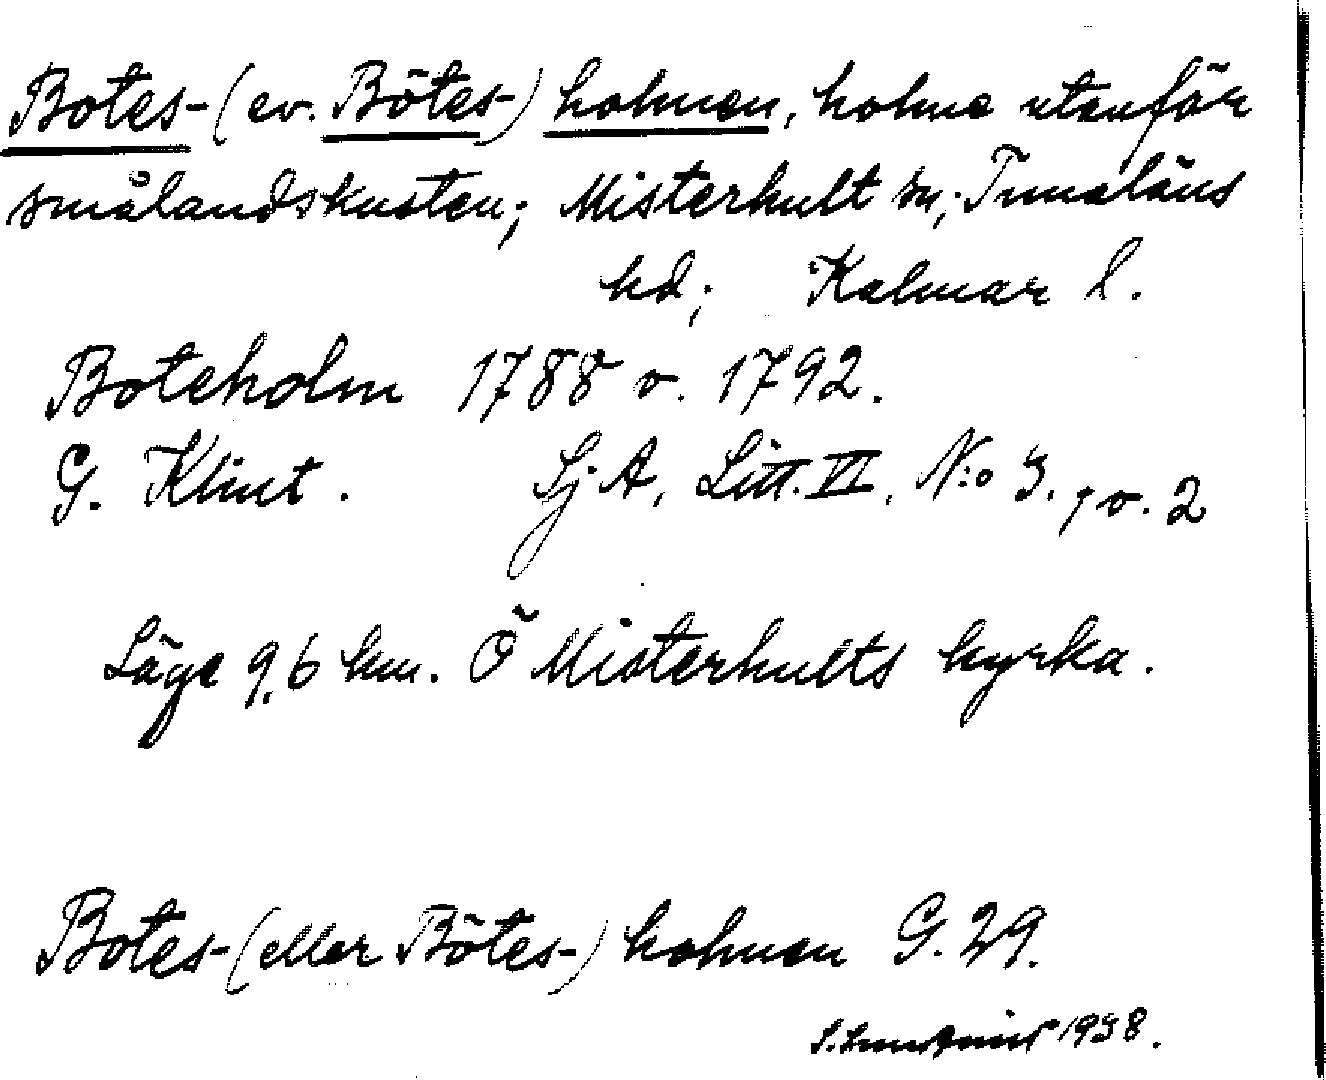 Botes-(ev. Bötes-) holmen, holme utanför
smålandskusten; Misterhult sn; Tunaläns
hd; Kalmar l.
Boteholm 1788 o. 1792.
G. Klint. SjA, Litt. VI, N:o 3. 1 o. 2
Läge 9,6 km. Ö Misterhults kyrka.
Botes-(eller Bötes-) holmen G. 29.
1938.